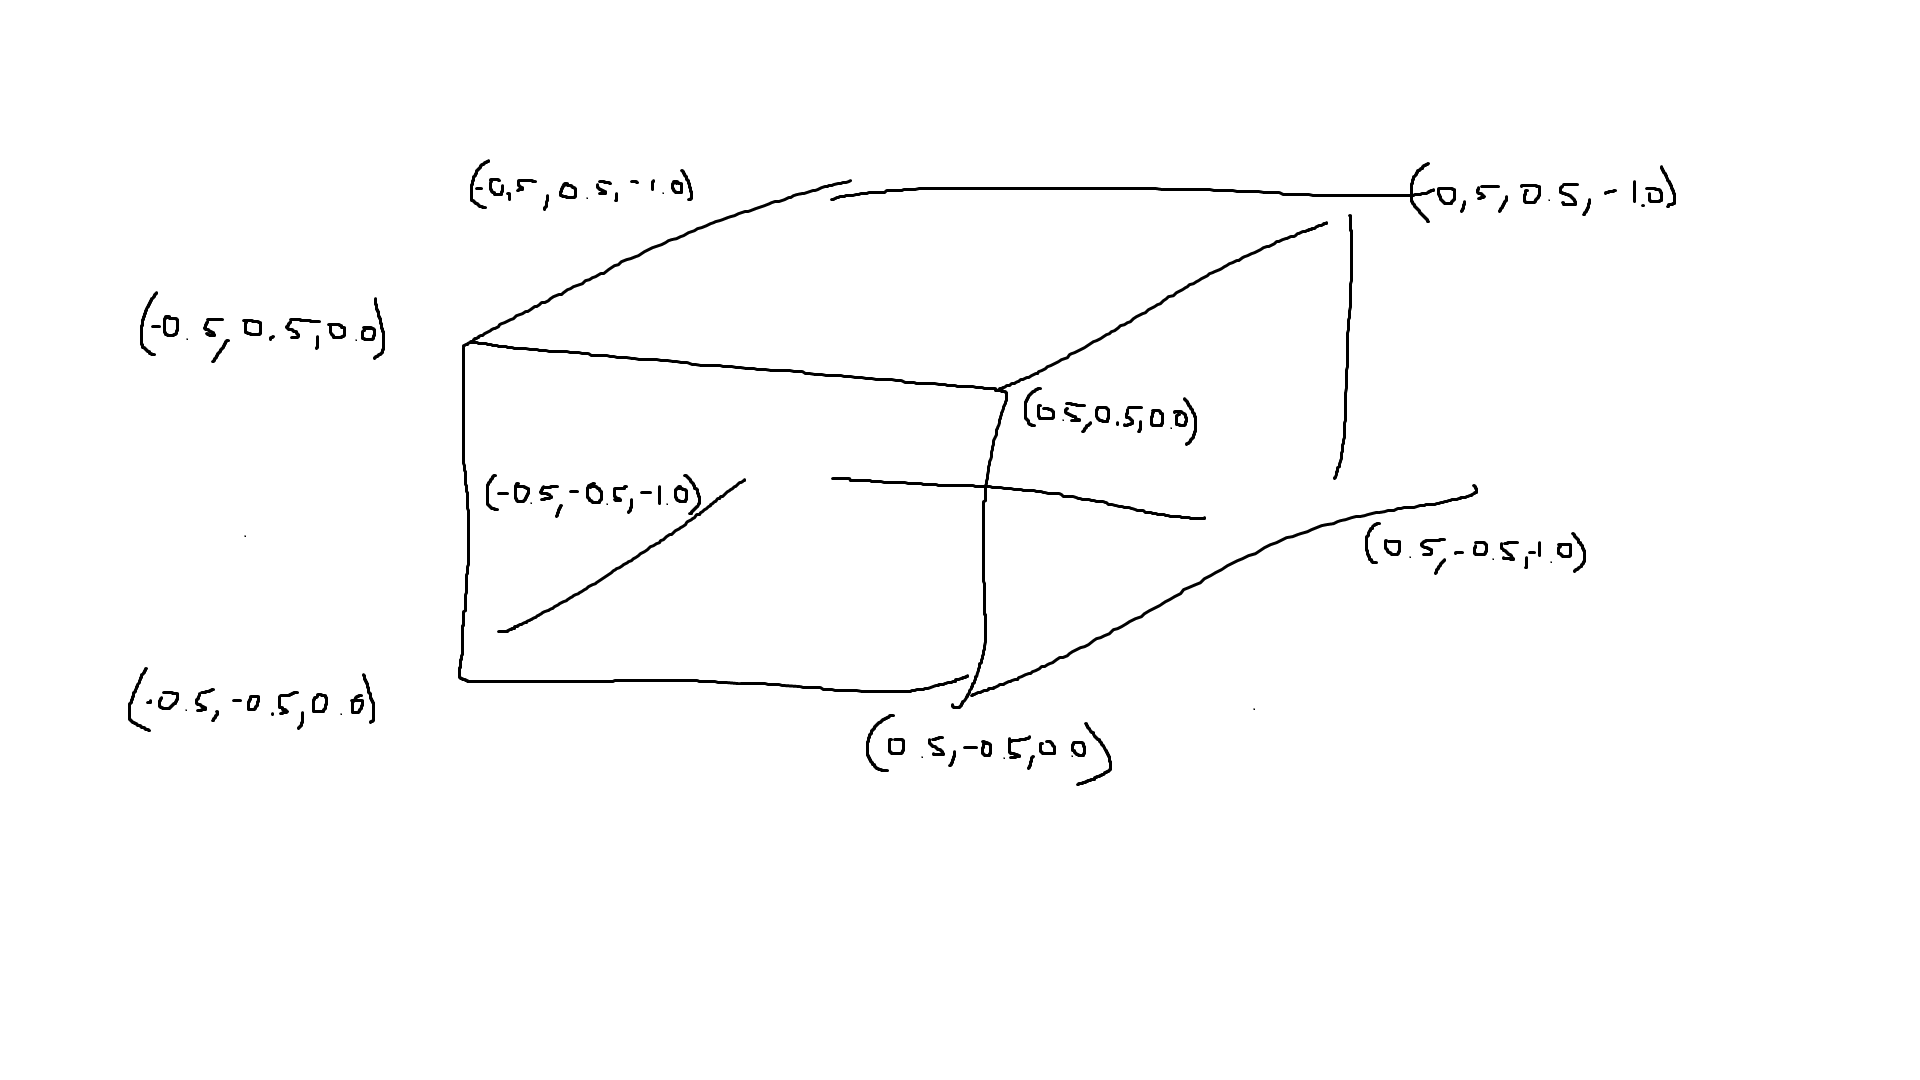 (-0,5, 0.5, -1.0)
(0,5, 0.5, -1.0)
(-0.5, 0.5, 0.0)
(0.5, 0.5, 0.0)
(-0.5, -0.5, -1.0)
(0.5, -0.5, -1.0)
(-0.5, -0.5, 0.0)
(0.5, -0.5, 0.0)